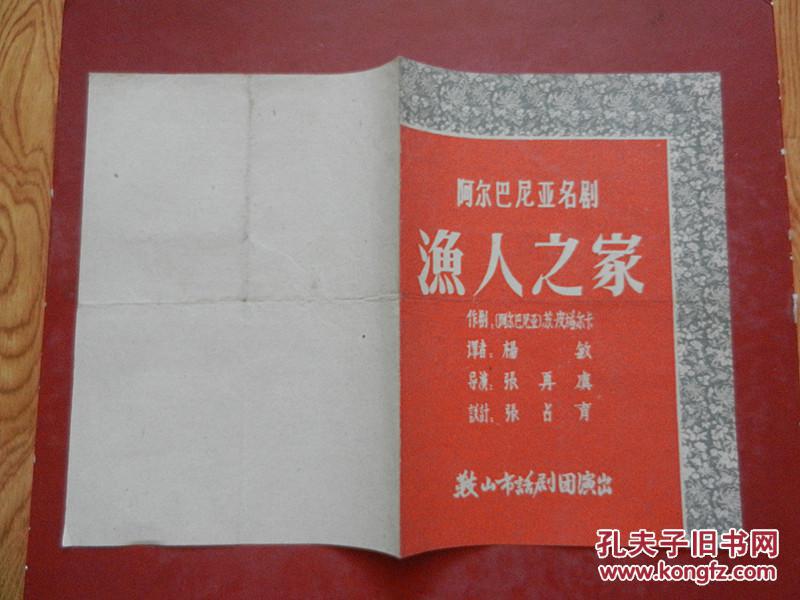 阿尔巴尼亚名剧
漁人之家
作剧：(阿尔巴尼亚)苏·皮塔尔卡
譯者：楊 敏
导演：張 再 虞
設計：張 占 育
鞍山市話剧团演出
孔夫子旧书网
www.kongfz.com